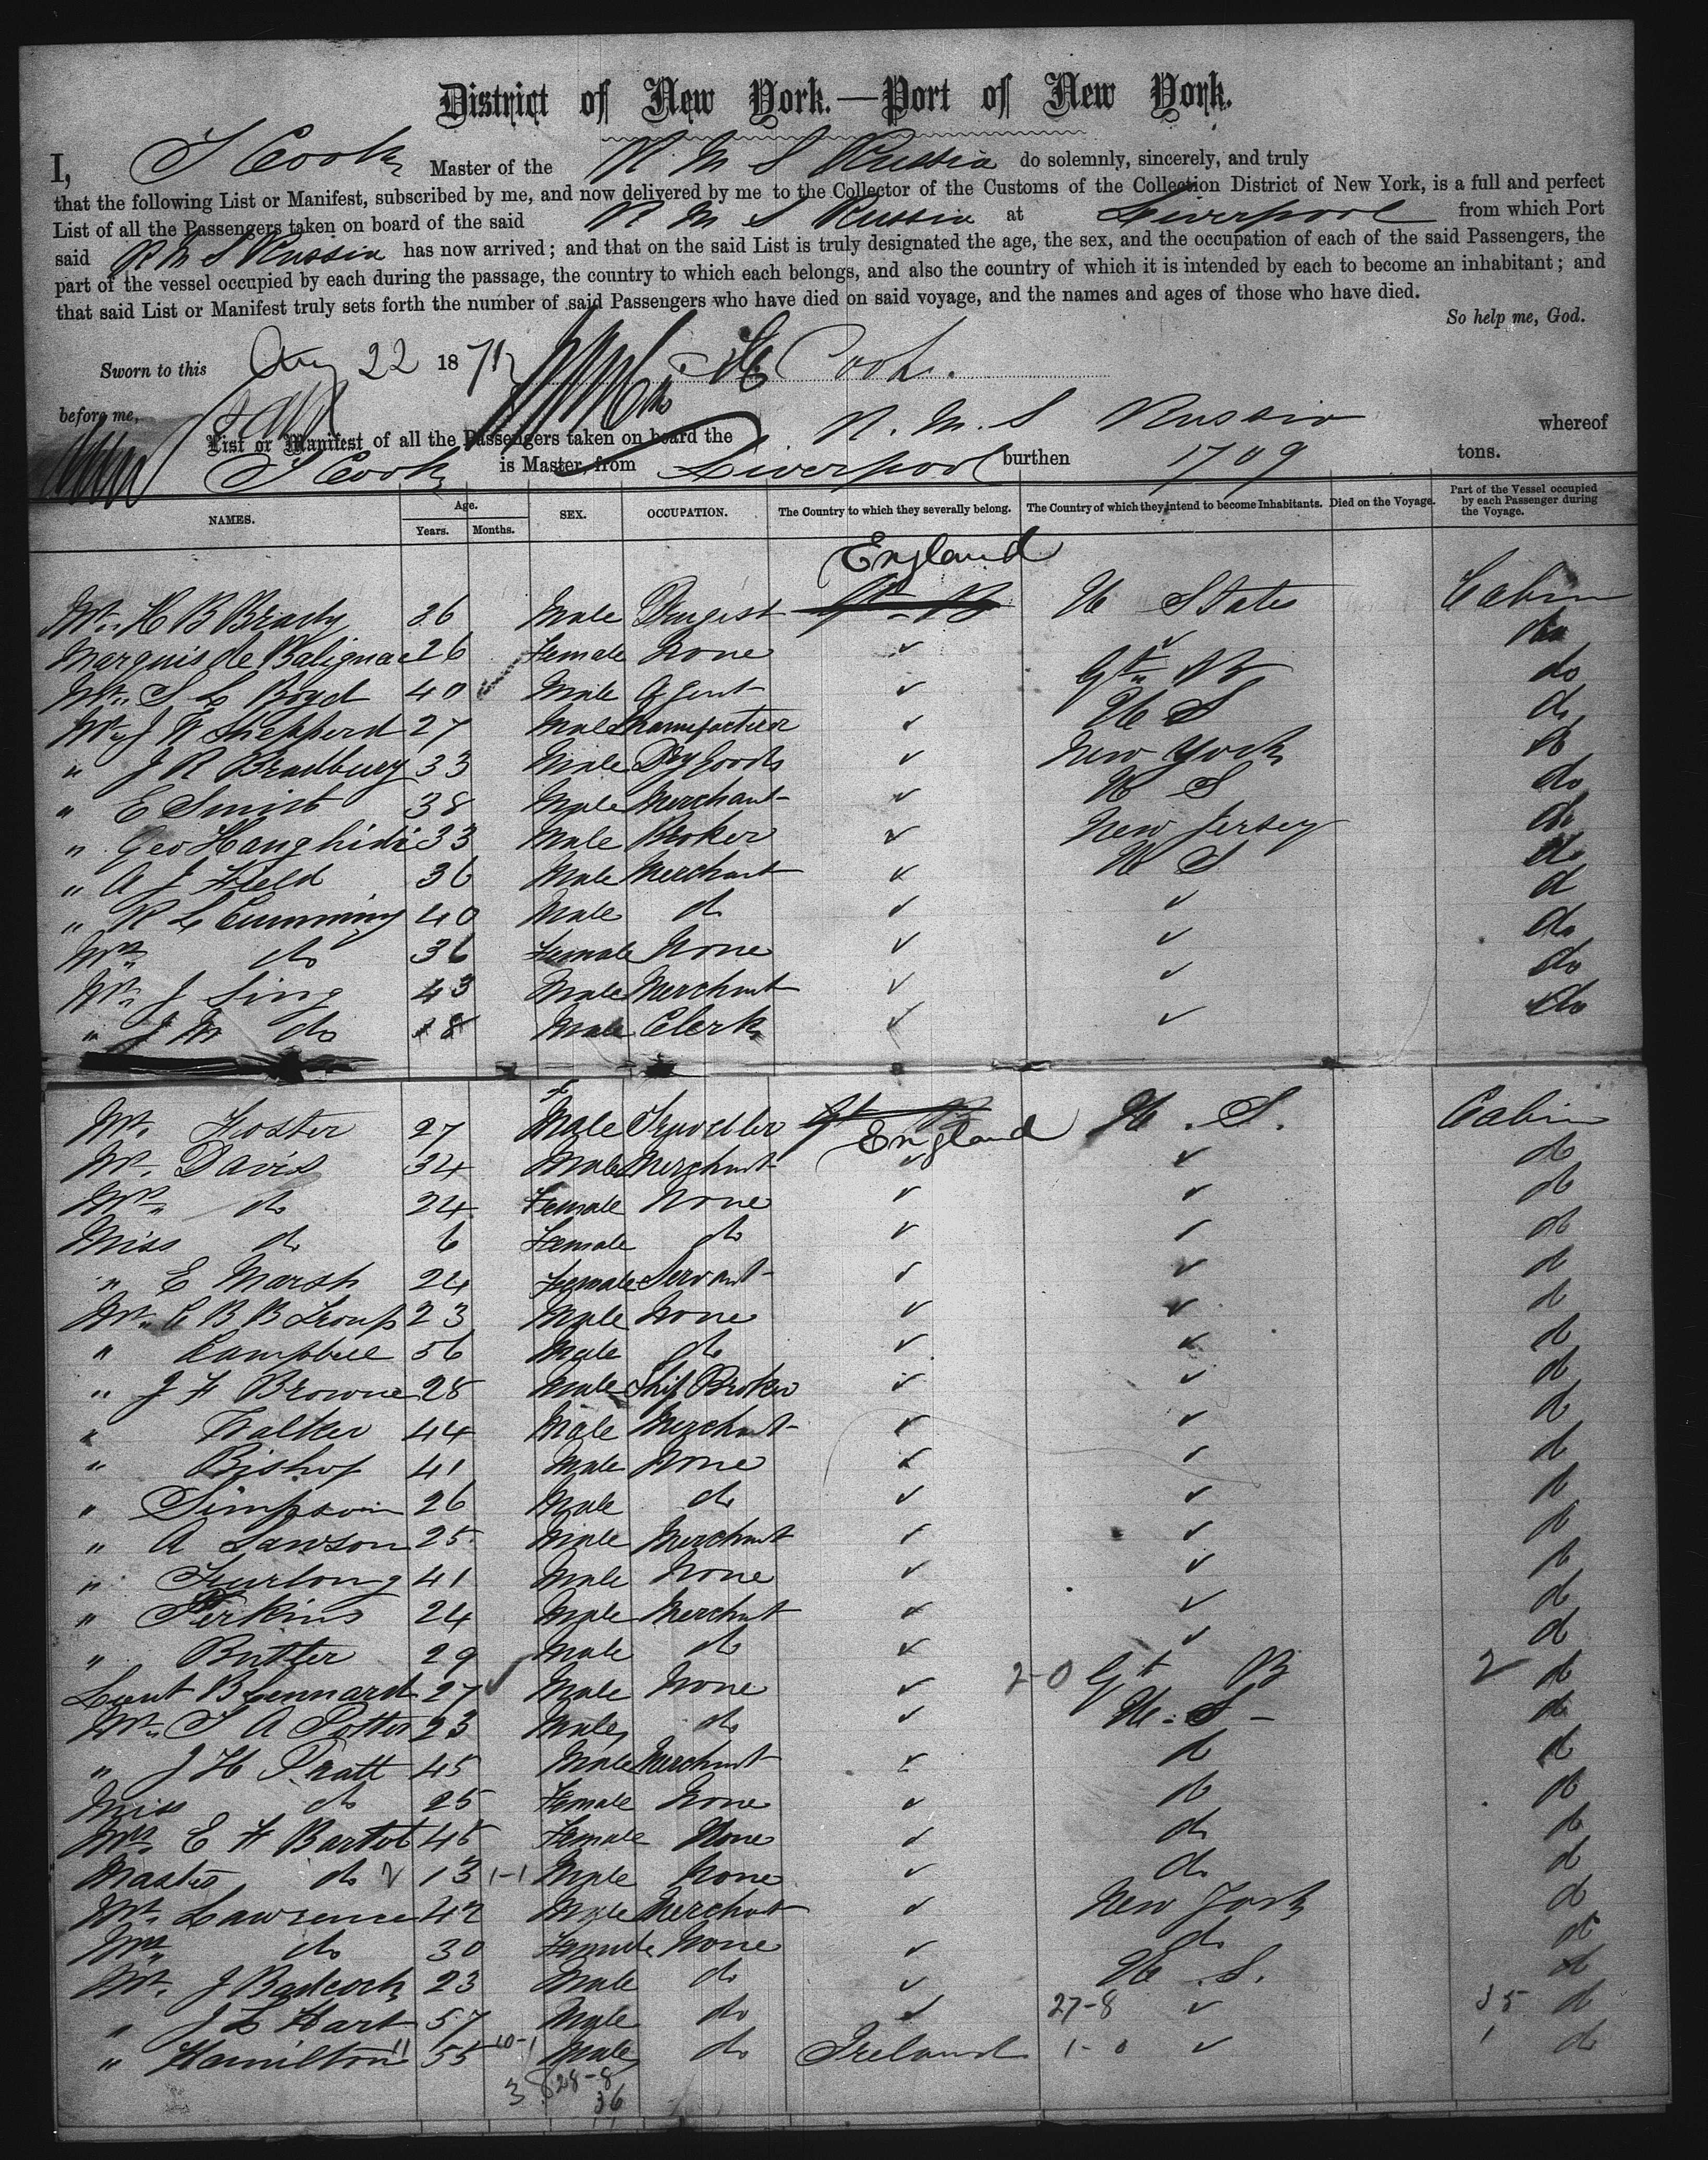 District of New York.—Port of New York.
I, T Cook Master of the R. M S Russia do solemnly, sincerely, and truly
that the following List or Manifest, subscribed by me, and now delivered by me to the Collector of the Customs of the Collection District of New York, is a full and perfect
List of all the Passengers taken on board of the said R M S Russia at Liverpool from which Port
said R M S Russia has now arrived; and that on the said List is truly designated the age, the sex, and the occupation of each of the said Passengers, the
part of the vessel occupied by each during the passage, the country to which each belongs, and also the country of which it is intended by each to become an inhabitant; and
that said List or Manifest truly sets forth the number of said Passengers who have died on said voyage, and the names and ages of those who have died.
So help me, God.
Sworn to this Aug 22 187 Cook.
before me,
List or Manifest of all the Passengers taken on board the R. M. S Russia whereof
T Cook is Master, from Liverpool burthen 1709 tons.
NAMES. Age. Years. Months. SEX. OCCUPATION. The Country to which they severally belong. The Country of which they intend to become Inhabitants. Died on the Voyage. Part of the Vessel occupied by each Passenger during the Voyage.
England
Mr. H B Brady 26 Male Drugist Gt B U States Cabin
Marquis de Balignac 26 Female None ✓ ✓ do
Mr. S L Boyd 40 ✓ Male Agent ✓ Gt B do
Mr J W Shepperd 27 Male Manufacturer ✓ U S do
" J R Bradbury 33 Male Dry Goods ✓ New York do
" E Smith 38 Male Merchant ✓ U S do
" Geo 33 Male Broker ✓ New Jersey do
" A J Field 36 Male Merchant ✓ U S do
" R L Cumming 40 Male do ✓ ✓ do
Mrs do 36 Female None ✓ ✓ do
Mr J Sing 43 Male Merchant ✓ ✓ do
" J M do 18 Male Clerk ✓ ✓ do
Mr. Foster 27 Male Traveller Gt B England U. S. Cabin
Mr. Davis 34 Male Merchant ✓ ✓ do
Mrs do 24 Female None ✓ ✓ do
Miss do 6 Female do ✓ ✓ do
" E Marsh 24 Female Servant ✓ ✓ do
Mr. C B B 23 Male None ✓ ✓ do
" Campbell 56 Male do ✓ ✓ do
" J F Browne 28 Male Ship Broker ✓ ✓ do
" Walker 44 Male Merchant ✓ ✓ do
" Bishop 41 Male None ✓ ✓ do
" Simpson 26 Male do ✓ ✓ do
" A Lawson 25 Male Merchant ✓ ✓ do
" Furlong 41 Male None ✓ ✓ do
" Perkins 24 Male Merchant ✓ ✓ do
" Butler 29 Male do ✓ ✓ do
Lieut B Lennard 27 ✓ Male None ✓ 2-0 Gt B 2 do
Mr. T A Potter 23 Male do ✓ U. S - do
" J H Pratt 45 Male Merchant ✓ do do
Miss do 25 Female None ✓ do do
Mrs E F 48 Female None ✓ do do
Master do 13 1-1 Male None ✓ do do
Mr. Lawrence 42 Male Merchant ✓ New York do
Mrs do 30 Female None ✓ do do
Mr. J Badcock 23 Male do ✓ U. S. do
" J L Hart 57 Male do ✓ 27-8 ✓ 35 do
" Hamilton 11 55 10-1 Male do Ireland 1-0 ✓ 1 do
3 8 28-8
36